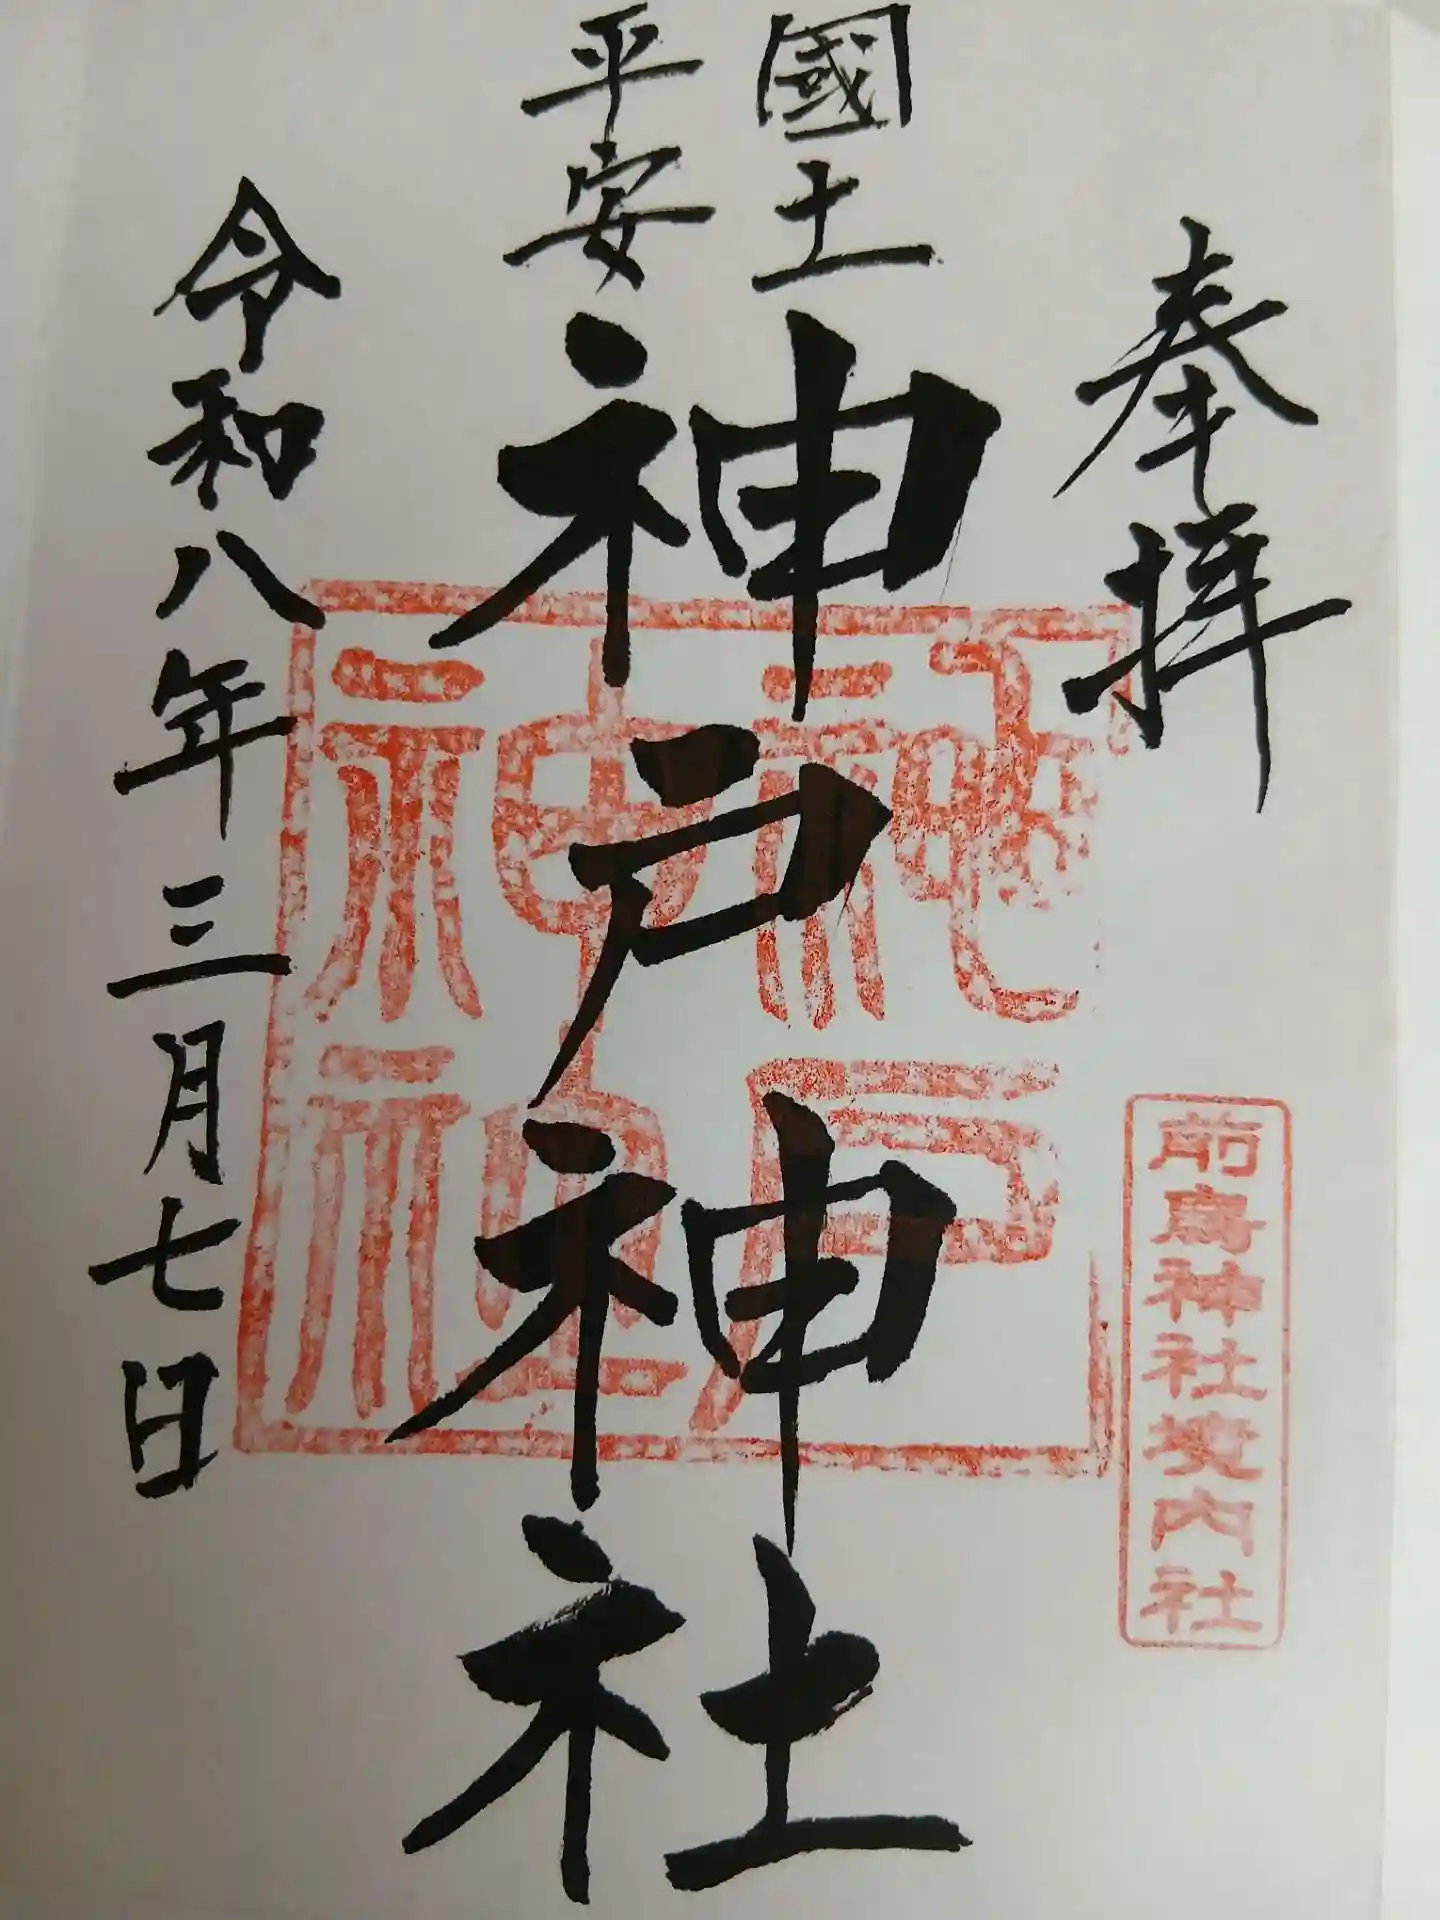 奉拝
前鳥神社境内社
國土
平安
神戸神社
神戸神社
令和八年三月七日